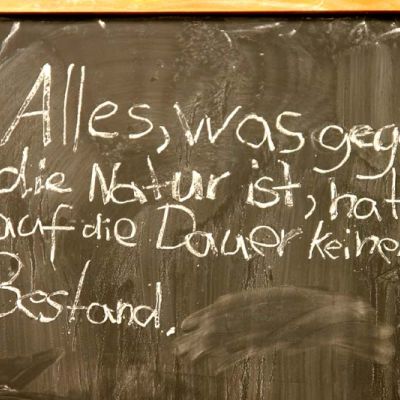 Alles, was geg
die Natur ist, hat
auf die Dauer keine
Bestand.